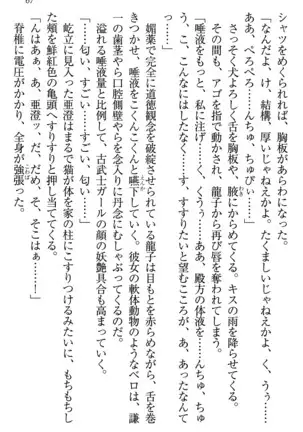 シャツをめくられれば、胸板があらわになった。
「なんだよ、け、結構、厚いじゃねえかよ。たくましいじゃねえかよ。く、う、
ああ、ぺろぺろ……んちゅ、ちゅぴ……」
さっそく犬よろしく舌を胸板や、腋にからめてくる。キスの雨を降らせてくる。
その間も、アゴを指で動かされ、龍子から再び唇を奪われてしまう。
「唾液をもっと、私に注げ……く、くうぅ……ああ、殿方の体液を……んちゅ、ちゅ
る、ちゅるり……すすりたいと望むこころが、あ、あったなんて」
媚薬で完全に道徳観念を破綻させられている龍子は目もとを赤らめながら、舌を巻
きつかせ、唾液をこくんこくんと嚥下していく。彼女の軟体動物のようなベロは、謙
一の歯茎や口腔側壁やらを念入りに丹念にむしゃぶってくるのだ。
溢れる唾液量と比例して、古武士ガールの顔の妖艶具合も高まっていく。
「……匂い、すごい、すごい、匂い……」
屹立に見入った亜澄はまるで猫が体を家の柱にこすりつけるみたいに、もちもちし
た頬を鮮紅色の亀頭へすりすりと押し当ててくる。
「んはぁあ、あ、亜澄っ、だ、だめ、そ、そこはぁ……！」
脊椎に電圧がかかり、全身が強張った。